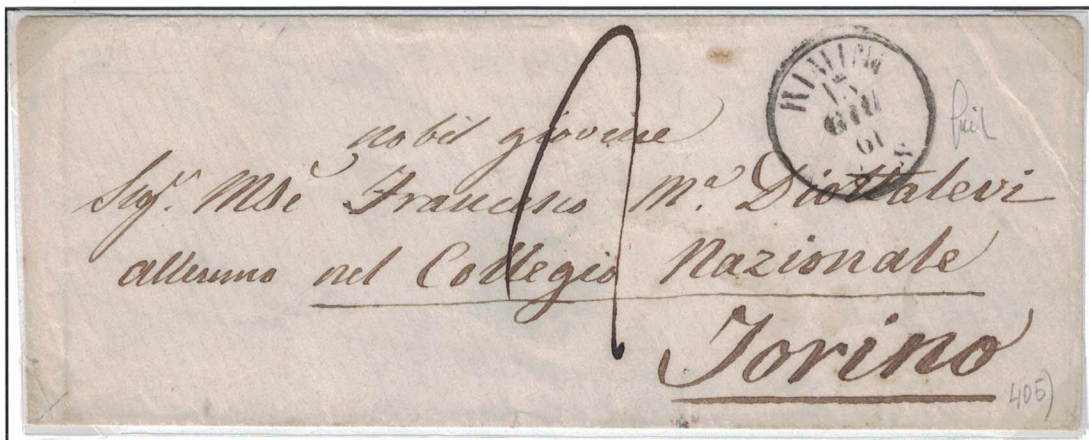 RIMINI
GIU
61
nobil giovine
Sigr. Mse Francesco Ma. Diottalevi
allunno nel Collegio Nazionale
Torino
405)